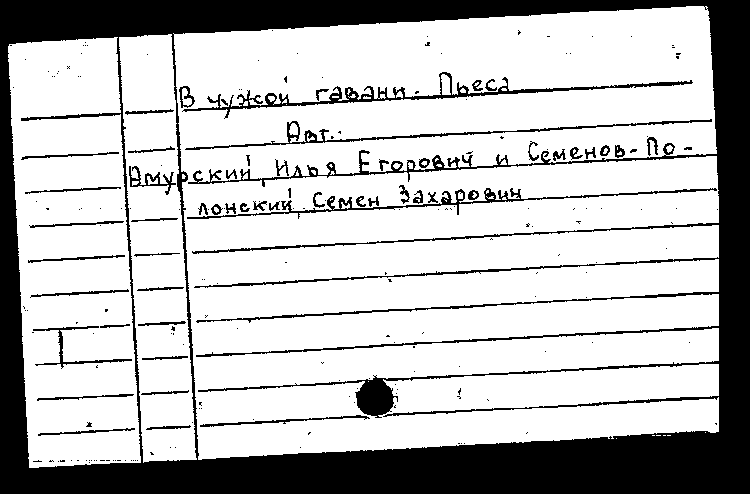 В чужой гавани. Пьеса
Авт.:
Амурский, Илья Егорович и Семенов-По-
лонский, Семен Захарович